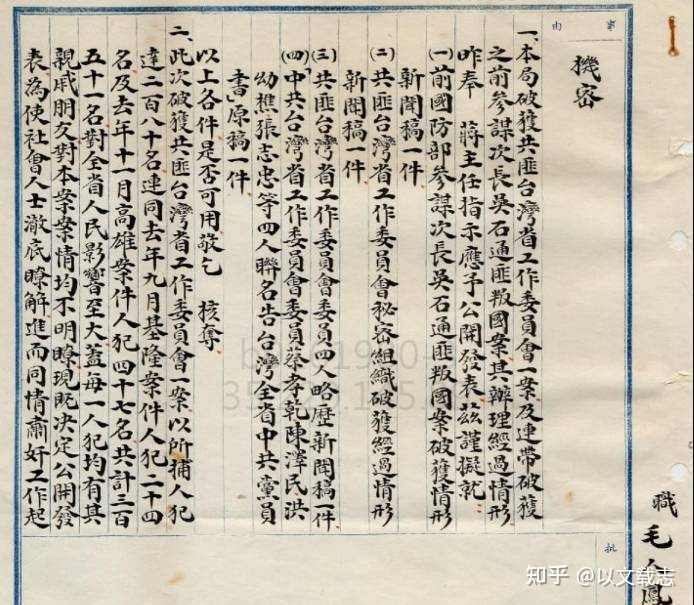 事由
機密
一、本局破獲共匪台灣省工作委員會一案及連帶破獲
之前參謀次長吳石通匪叛國案其辦理經過情形
昨奉 蔣主任指示應予公開發表茲謹擬就
(一)前國防部參謀次長吳石通匪叛國案破獲情形
新聞稿一件
(二)共匪台灣省工作委員會秘密組織破獲經過情形
新聞稿一件
(三)共匪台灣省工作委員會委員四人略歷新聞稿一件
(四)中共台灣省工作委員會委員蔡孝乾陳澤民洪
幼樵張志忠等四人聯名告台灣全省中共黨員
書」原稿一件
以上各件是否可用敬乞 核奪
二、此次破獲共匪台灣省工作委員會一案以所捕人犯
達二百八十名連同去年九月基隆案件人犯二十四
名及去年十一月高雄案件人犯四十七名共計三百
五十一名對全省人民影響至大蓋每一人犯均有其
親戚朋友對本案案情均不明瞭現既決定公開發
表為使社會人士澈底瞭解進而同情肅奸工作起
批
職 毛人鳳
知乎 @以文载志